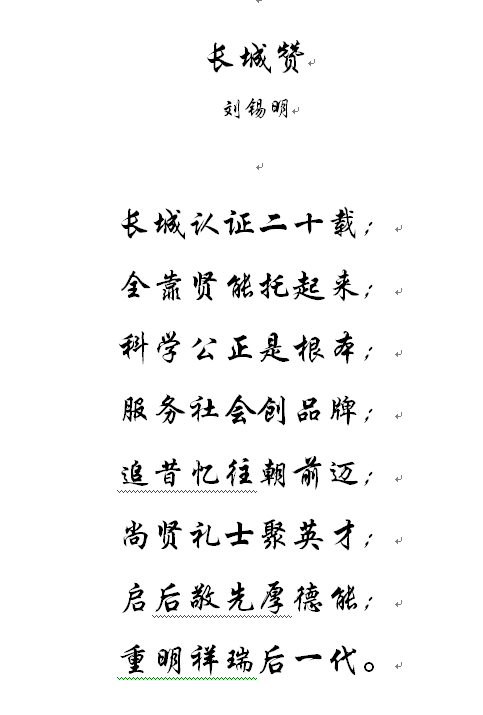 长城赞
刘锡明
长城认证二十载；
全靠贤能托起来；
科学公正是根本；
服务社会创品牌；
追昔忆往朝前迈；
尚贤礼士聚英才；
启后敬先厚德能；
重明祥瑞后一代。